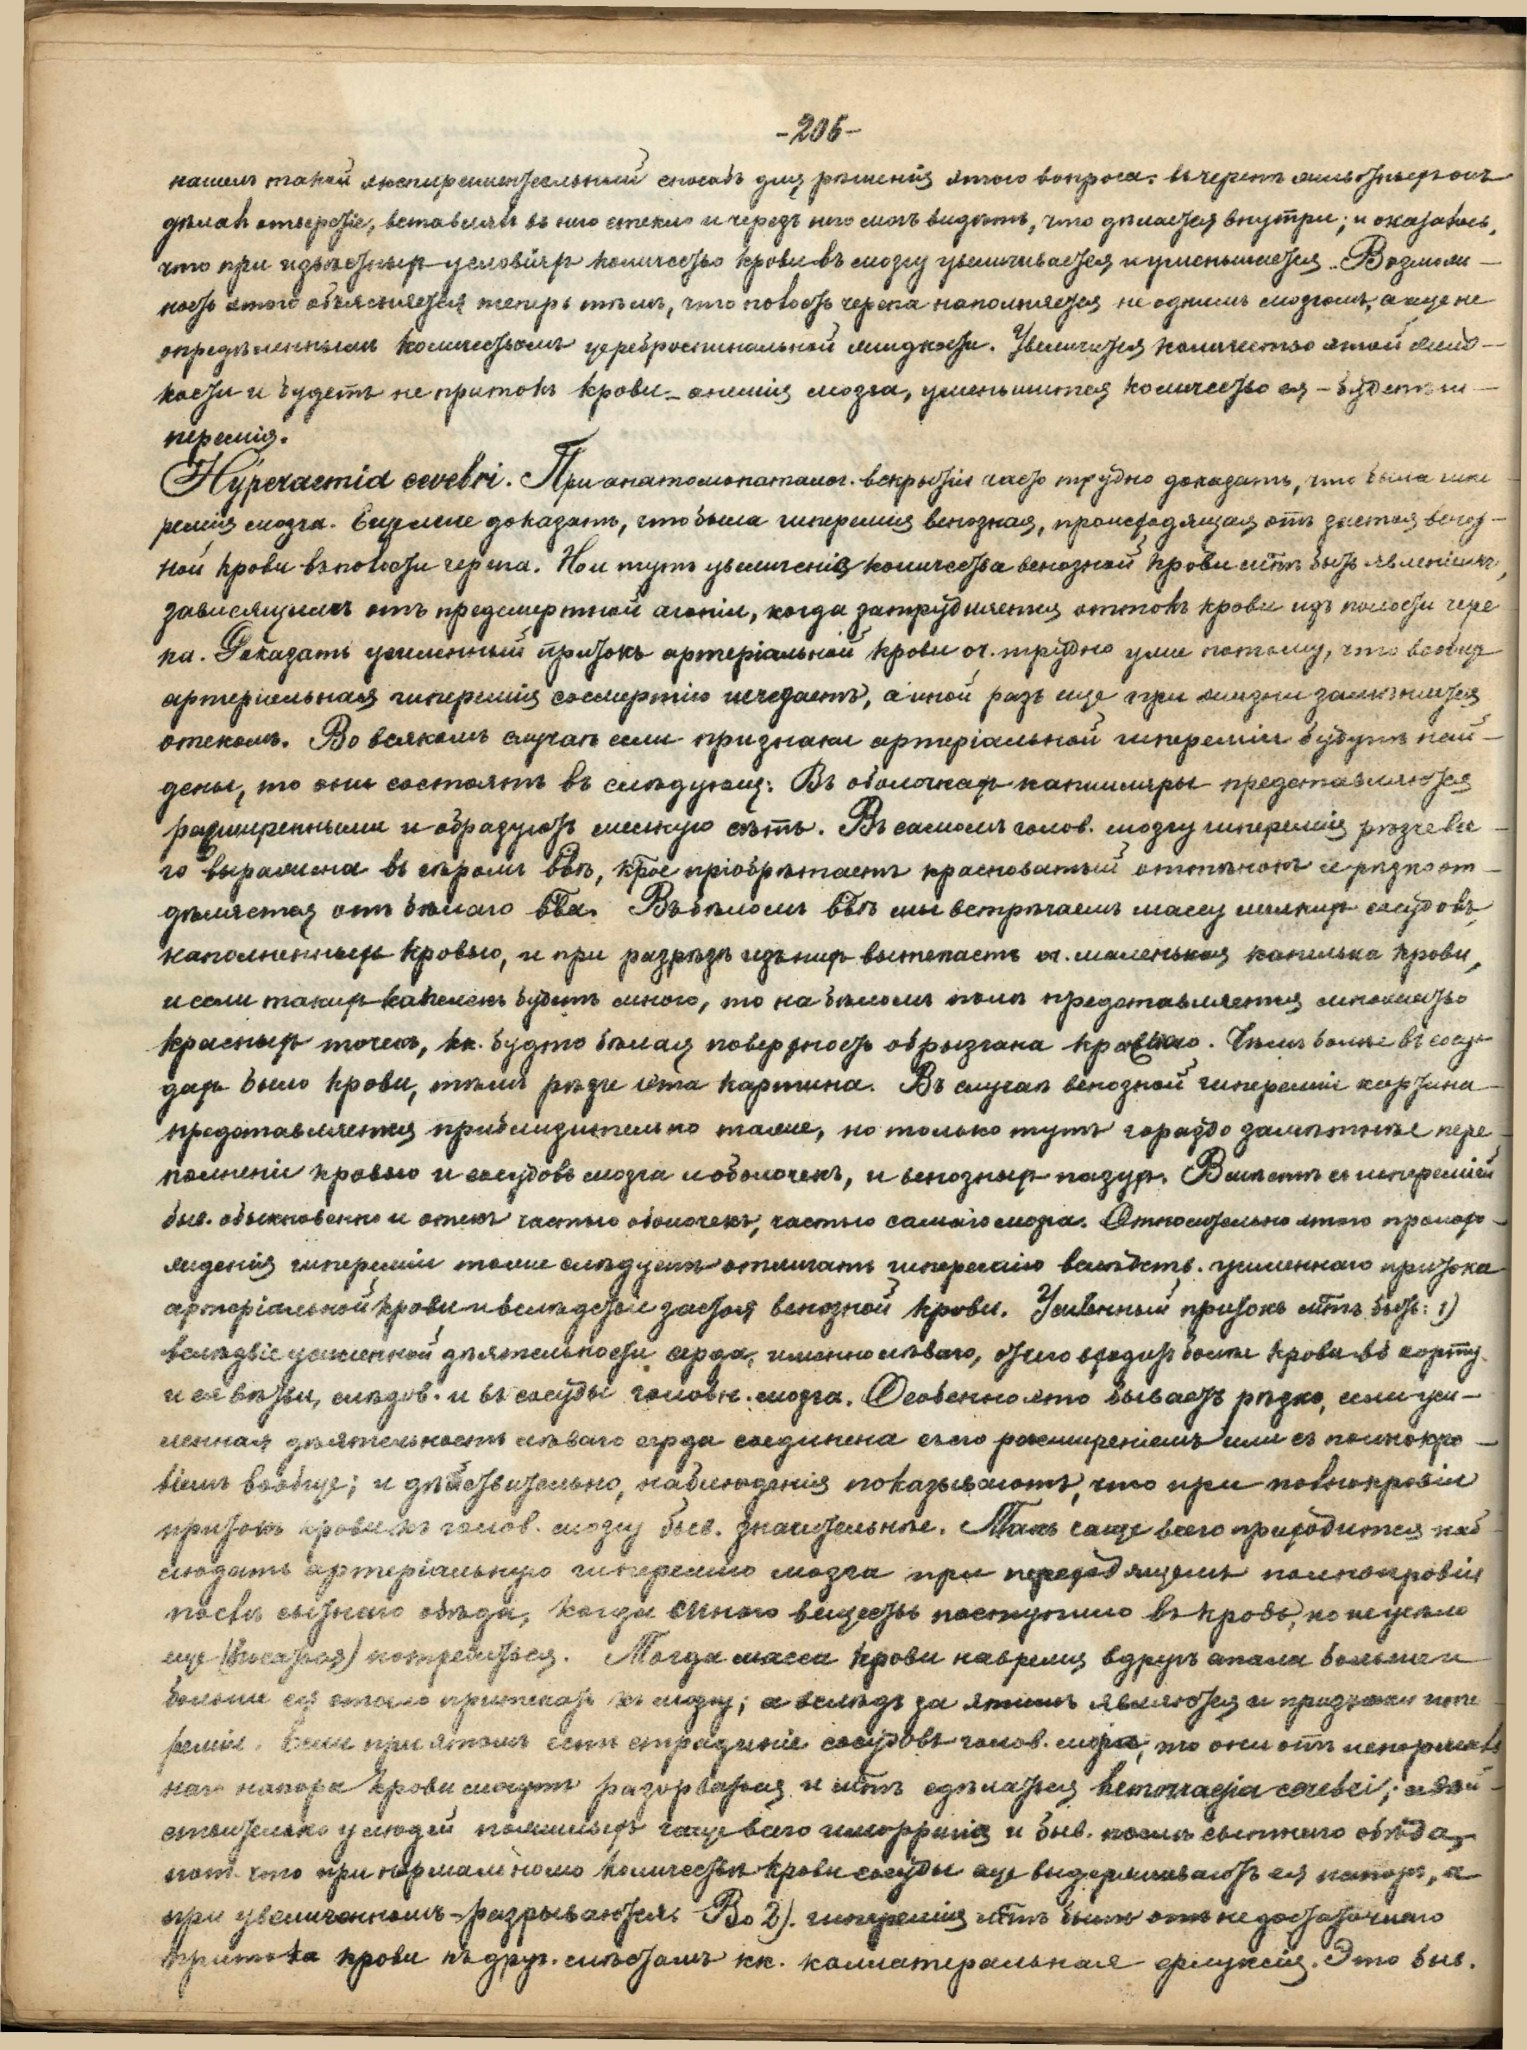 -206-
нашелъ такой экспериментальный способъ для рѣшенія этого вопроса: въ черепѣ животныхъ онъ
дѣлалъ отверстіе, вставлялъ въ него стекло и черезъ него могъ видѣть, что дѣлается внутри; и оказалось,
что при извѣстныхъ условіяхъ количество крови въ мозгу увеличивается и уменьшается. Возмож-
ность этого объясняется теперь тѣмъ, что полость черепа наполняется не однимъ мозгомъ, а еще не
опредѣленнымъ количествомъ цереброспинальной жидкости. Увеличится количество этой жид-
кости и будетъ не притокъ крови - анемія мозга, уменьшится количество ея - будетъ ги-
перемія.
Hyperaemia cerebri. При анатомопаталог. вскрытіи часто трудно доказать, что была гипе
ремія мозга. Еще легче доказать, что была гиперемія венозная, происходящая отъ застоя веноз-
ной крови въ полости черепа. Но и тутъ увеличеніе количества венозной крови мтъ быть явленіемъ,
зависящимъ отъ предсмертной агоніи, когда затрудняется оттокъ крови изъ полости чере
па. Доказать усиленный притокъ артеріальной крови оч. трудно уже потому, что вообще
артеріальная гиперемія со смертію исчезаетъ, а иной разъ еще при жизни замѣняется
отекомъ. Во всякомъ случаѣ если признаки артеріальной гипереміи будутъ най-
дены, то они состоятъ въ слѣдующ: Въ оболочкахъ капилляры представляются
расширенными и образуютъ мелкую сѣть. Въ самомъ голов. мозгу гиперемія рѣзче все-
го выражена въ сѣромъ ввѣ, крое пріобрѣтаетъ красноватый оттѣнокъ и рѣзко от-
дѣляется отъ бѣлаго вва. Въ бѣломъ ввѣ мы встрѣчаемъ массу мелкихъ сосудовъ,
наполненныхъ кровью, и при разрѣзѣ изъ нихъ вытекаетъ оч. маленькая капелька крови,
и если такихъ капелекъ будетъ много, то на бѣломъ полѣ представляется множество
красныхъ точекъ, кк. будто бѣлая поверхность обрызгана кровью. Чѣмъ болѣе въ сосу
дахъ было крови, тѣмъ рѣзче эта картина. Въ случаѣ венозной гипереміи картина
представляется приблизительно такая, но только тутъ гораздо замѣтнѣе пере
полненіе кровью и сосудовъ мозга и оболочекъ, и венозныхъ пазухъ. Вмѣстѣ съ гипереміей
быв. обыкновенно и отекъ частью оболочекъ, частью самаго мозга. Относительно этого происхо-
жденія гипереміи также слѣдуетъ отличать гиперемію вслѣдств. усиленнаго притока
артеріальной крови и вслѣдствіе застоя венозной крови. Усиленный притокъ мтъ быть: 1)
вслѣдвіе усиленной дѣятельности серда, именно лѣваго, отчего входитъ болѣе крови въ аорту
и ея вѣтви, слѣдов. и въ сосуды головн. мозга. Особенно это бываетъ рѣзко, если уси-
ленная дѣятельность лѣваго серда соединена съ его расширеніемъ или съ полнокро-
віемъ вообще; и дѣйствительно, наблюденія показываютъ, что при полнокровіи
притокъ крови къ голов. мозгу быв. значительнѣе. Такъ чаще всего приходится наб-
людать артеріальную гиперемію мозга при переходящемъ полнокровіи
послѣ сытнаго обѣда, когда много веществъ поступило въ кровь, но не успѣло
еще потребиться. Тогда масса крови на время вдругъ стала больше и
больше ея стало притекать къ мозгу; а вслѣдъ за этимъ являются и признаки гипе-
реміи. Если при этомъ есть страданіе сосудовъ голов. мозга, то они отъ ненормаль
наго напора крови могутъ разорваться и мтъ сдѣлаться hemorragia cerebri; и дѣй-
ствительно у людей пожилыхъ чаще всего гиморрагія и быв. послѣ сытнаго обѣда,
пот. что при нормальномъ количествѣ крови сосуды еще выдерживаютъ ея напоръ, а
при увеличенномъ - разрываются. Во 2). гиперемія мтъ быть отъ недостаточнаго
притока крови къ друг. мѣстамъ кк. коллатеральная флуксія. Это быв.